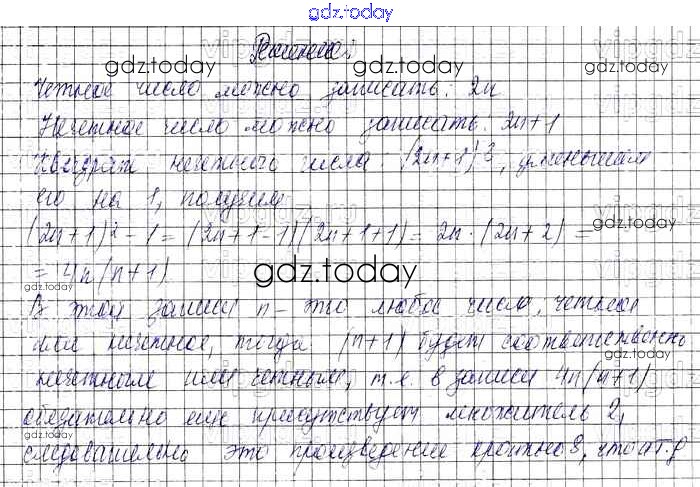 gdz.today
Решение:
Четное число можно записать: 2n
Нечетное число можно записать: 2n+1
Квадрат нечетного числа (2n+1)², уменьшим
его на 1, получим
(2n+1)² - 1 = (2n+1-1)(2n+1+1) = 2n·(2n+2) =
= 4n(n+1)
В этой записи n - это любое число, четное
или нечетное, тогда (n+1) будет соответственно
нечетным или четным, т.е. в записи 4n(n+1)
обязательно еще присутствует множитель 2,
следовательно это произведение кратно 8, что и т.д
gdz.today
gdz.today
gdz.today
gdz.today
gdz.today
gdz.today
gdz.today
gdz.today